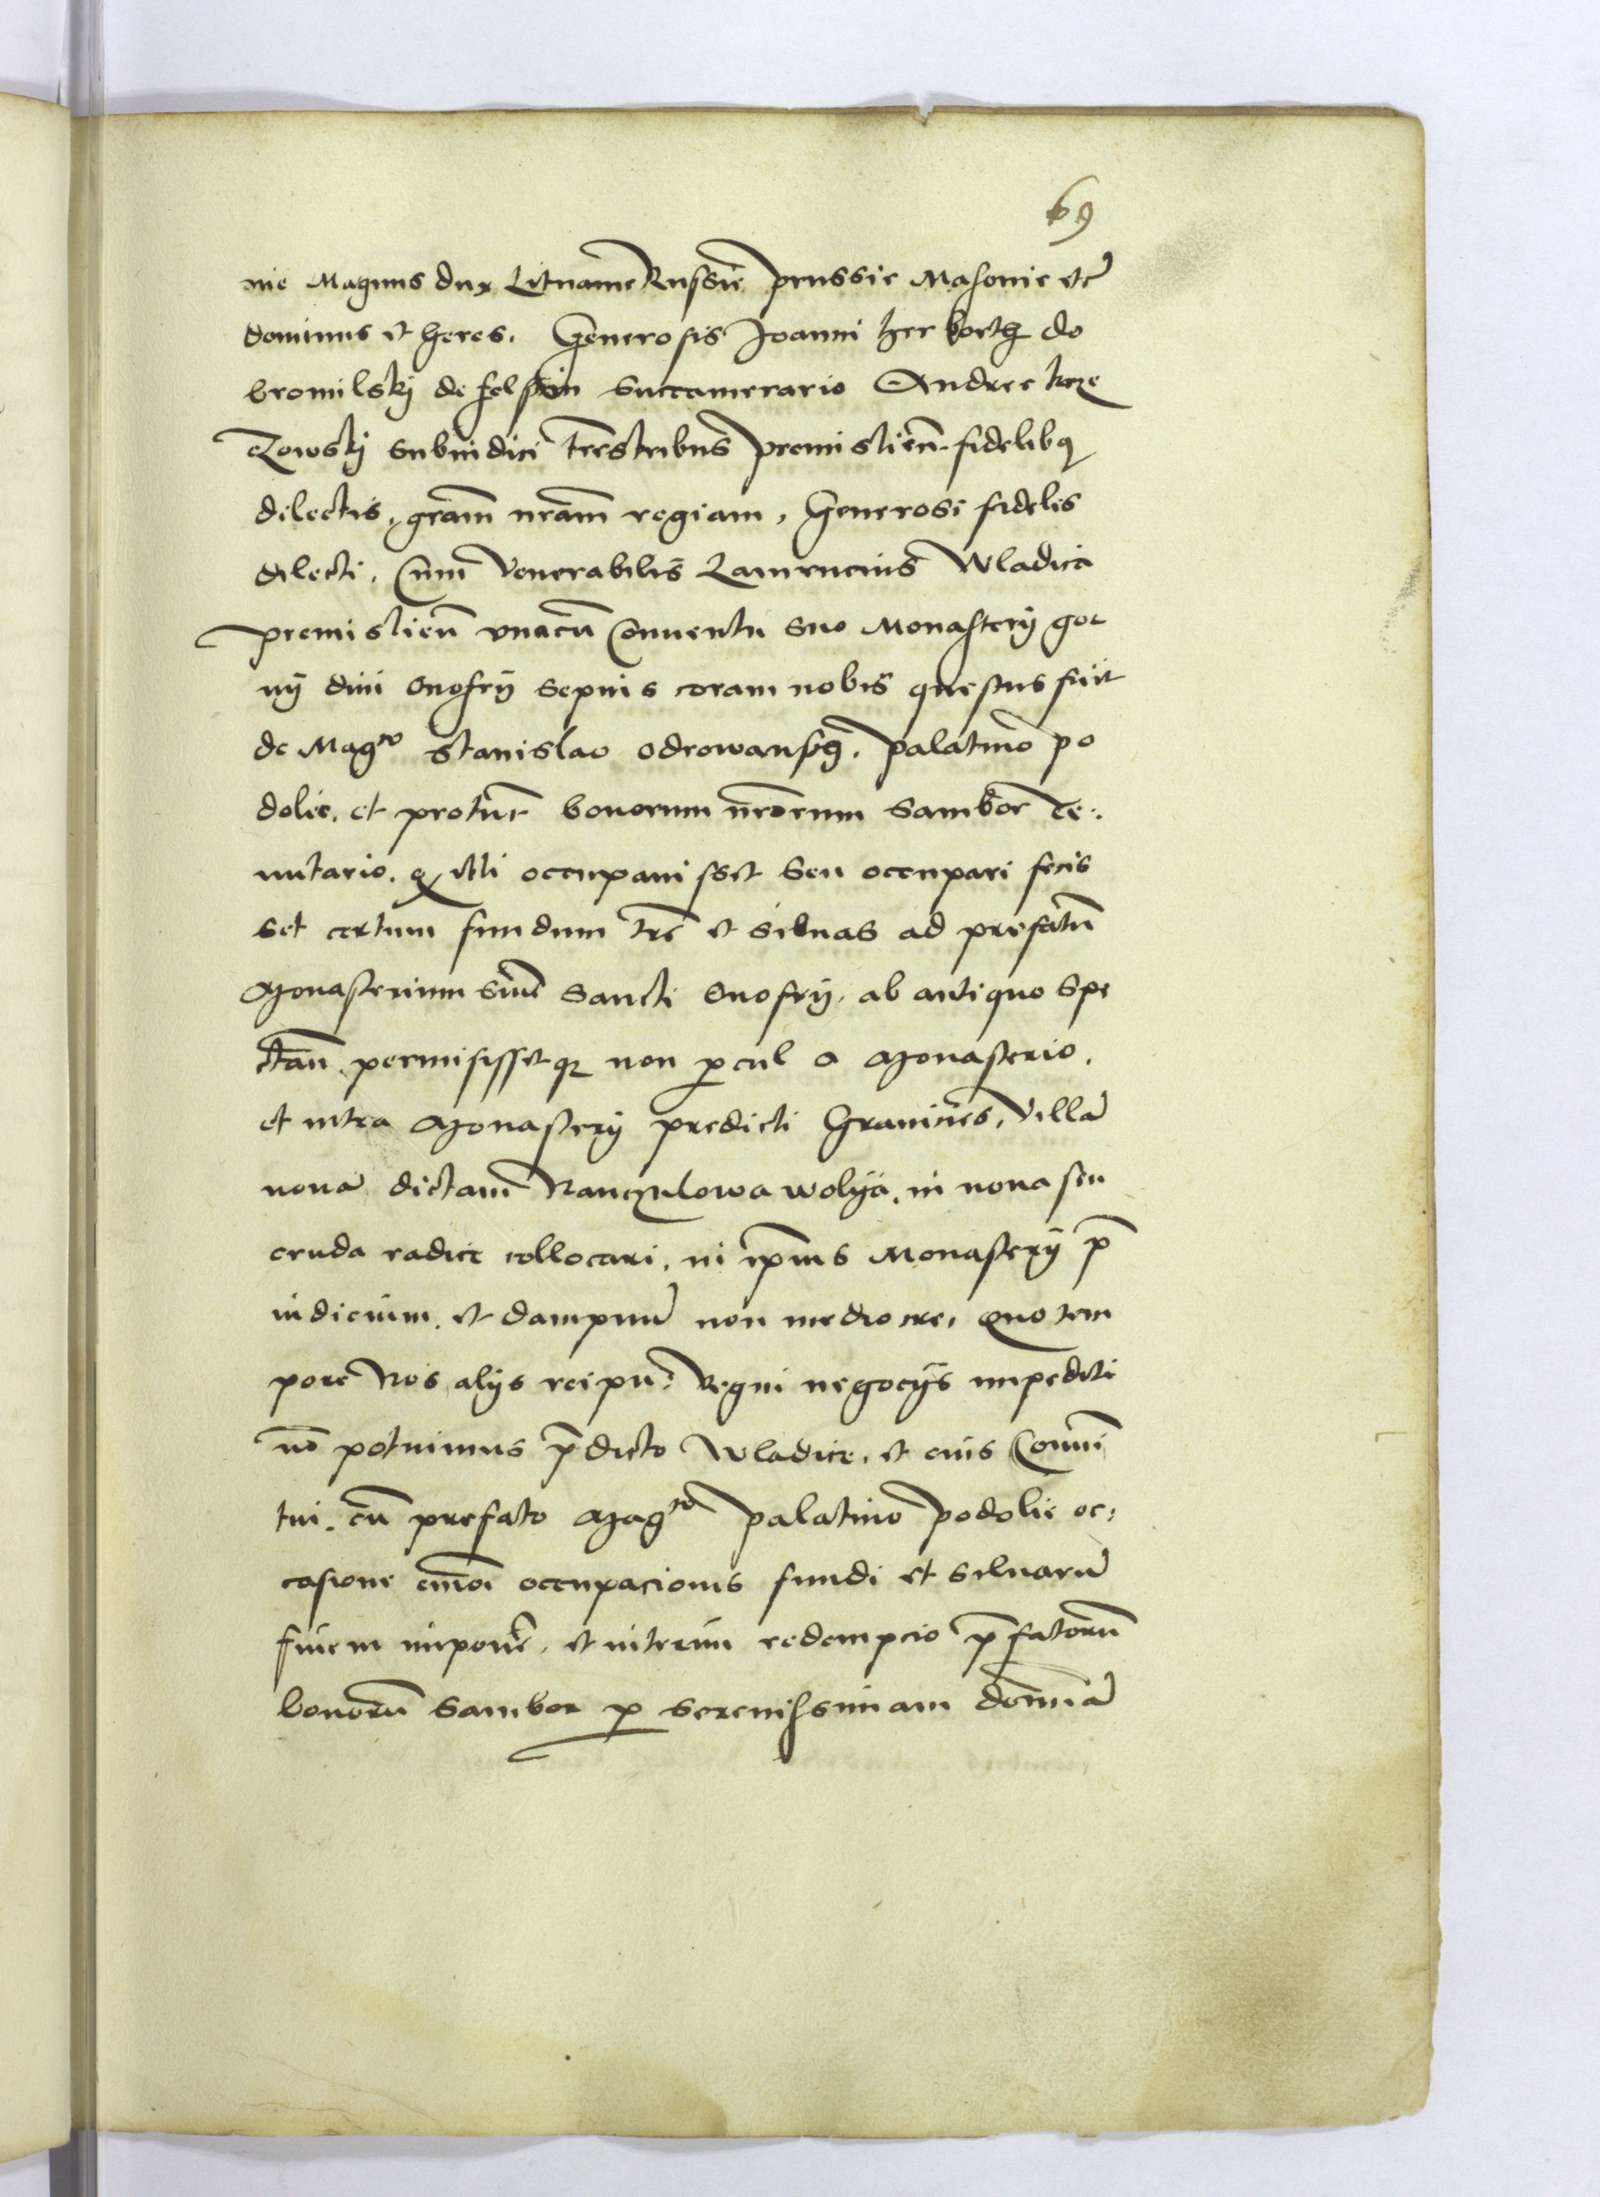 69
nie Magnus dux Lituanie Russie prussie Masouie etc
dominus et heres. Generosis Joanni herborth do
bromilskj de felstin Succamerario Andree
Subiudici trrestribus premislien̄. fidelibq
dilectis, grām nrām regiam, Generosi fideles
dilecti. Cum Venerabilis Laurencius Wladica
premislien̄ vnacū Conuentu suo Monasterÿ gor
nÿ diui Onofrÿ sepius coram nobis questus fuit
de Magco Stanislao odrowansch, palatino po
dolie. et protūc bonorum nrōrum Sambor Te-
nutario. q̄ illi occupauisset Seu occupari fecis
set certum fundum trē et siluas ad prefatū
Monasterium suum Sancti Onofrÿ. ab antiquo spe
ctan̄ permisissetq; non p̱cul a Monasterio.
et intra Monasterÿ predicti Granicies, Villā
nouā dictam Nanczulowa wolya. in noua seu
cruda radice collocari, in ip̄ius Monasterÿ p̄
iudicium. et dampnū non mediocre, Quo tem
pore Nos alijs reipu: Regni negocijs impediti
nō potuimus p̄dicto Wladice. et eius Conuē
tui. cū prefato Magco palatino podolie oc-
casione occupacionis fundi et siluarū
finem imponē. et interim redempcio p̄fatorū
bonorū Sambor p̱ Serenissimam dominā